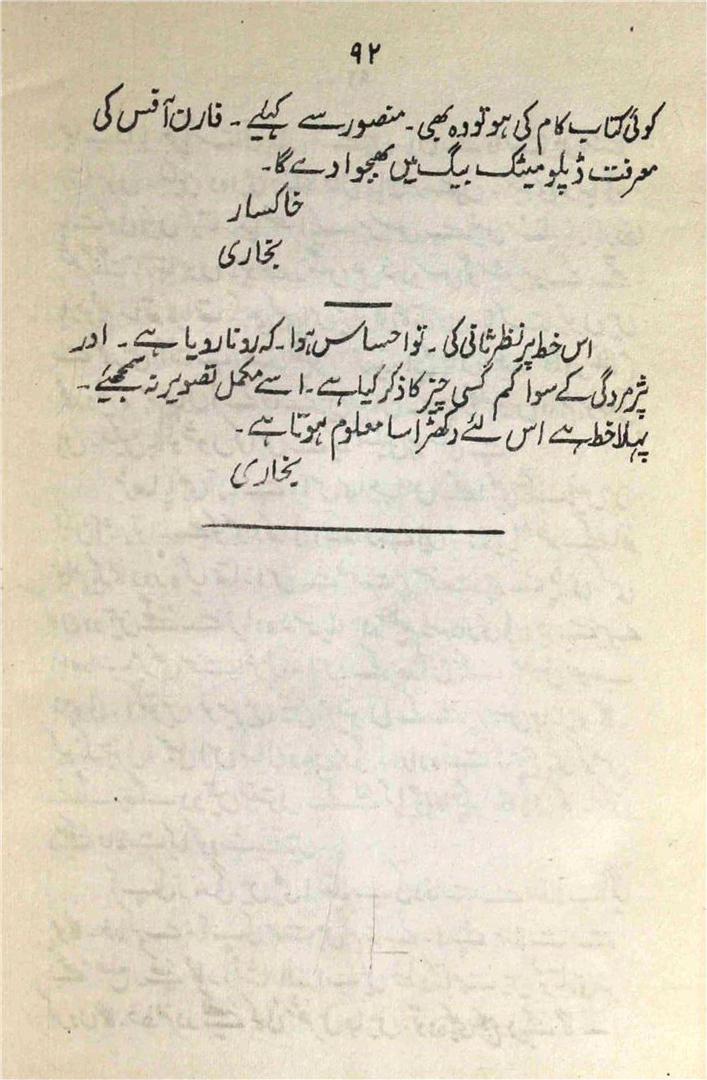 ۹۲
کوئی کتاب کام کی ہو تو وہ بھی۔ منصور سے کہیے۔ فارن آفس کی
معرفت ڈپلومیٹک بیگ میں بھجوا دے گا۔
خاکسار
بخاری
اس خط پر نظر ثانی کی۔ تو احساس ہوا۔ کہ رونا رویا ہے۔ اور
پژمردگی کے سوا کم کسی چیز کا ذکر کیا ہے۔ اسے مکمل تصویر نہ سمجھیئے۔
پہلا خط ہے اس لئے دکھڑا سا معلوم ہوتا ہے۔
بخاری